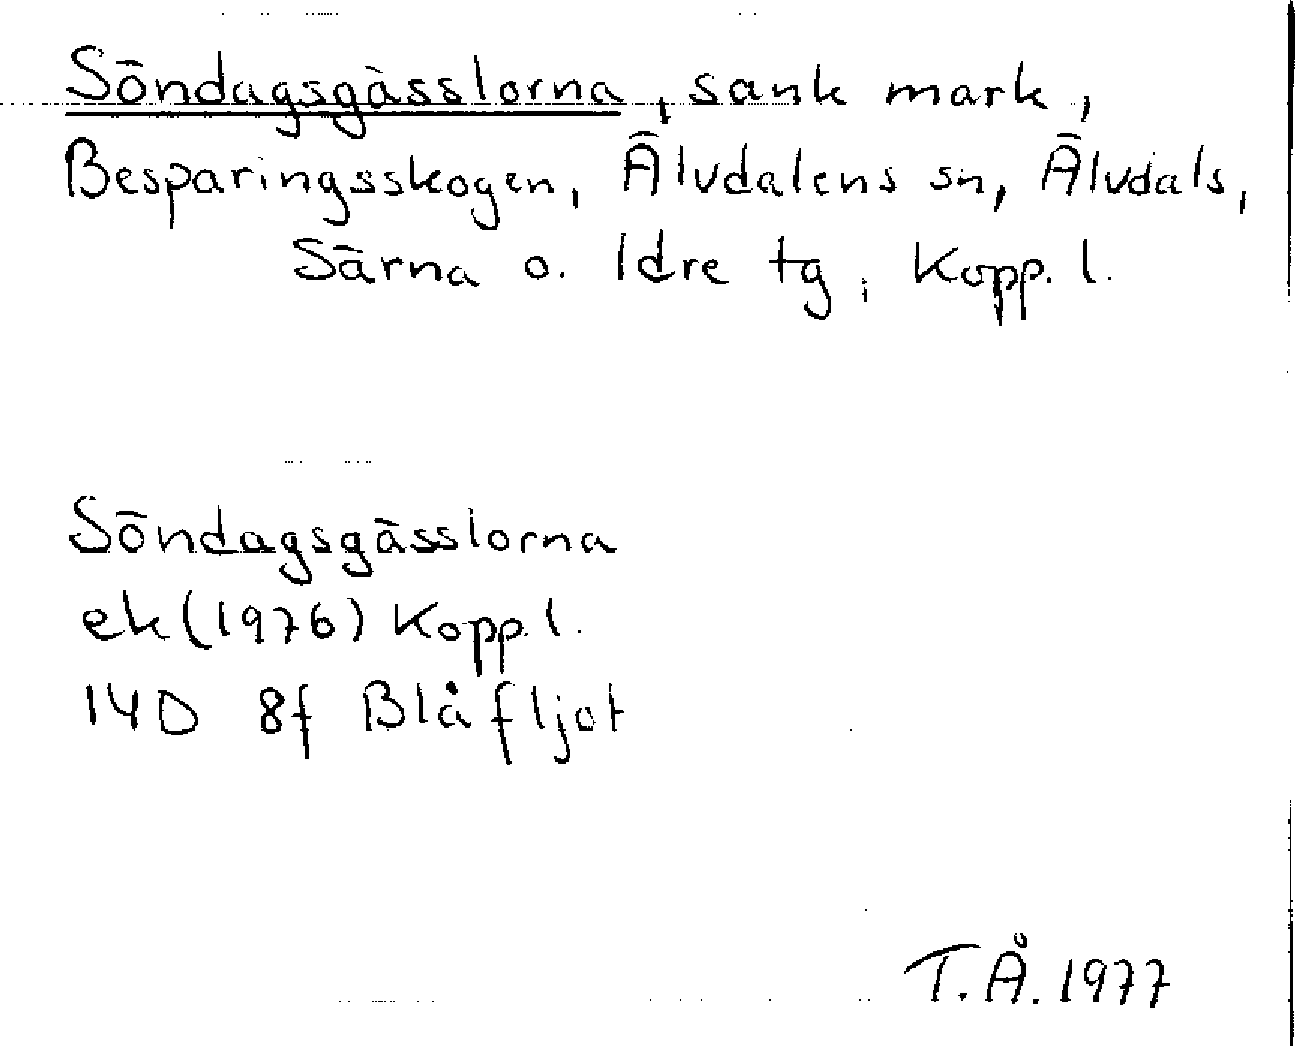 Söndagsgässlorna, sank mark,
Besparingsskogen, Älvdalens sn, Älvdals,
Särna o. Idre tg, Kopp. l.
Söndagsgässlorna
ek (1976) Kopp. l.
14D 8f Blåfljot
T.Å. 1977